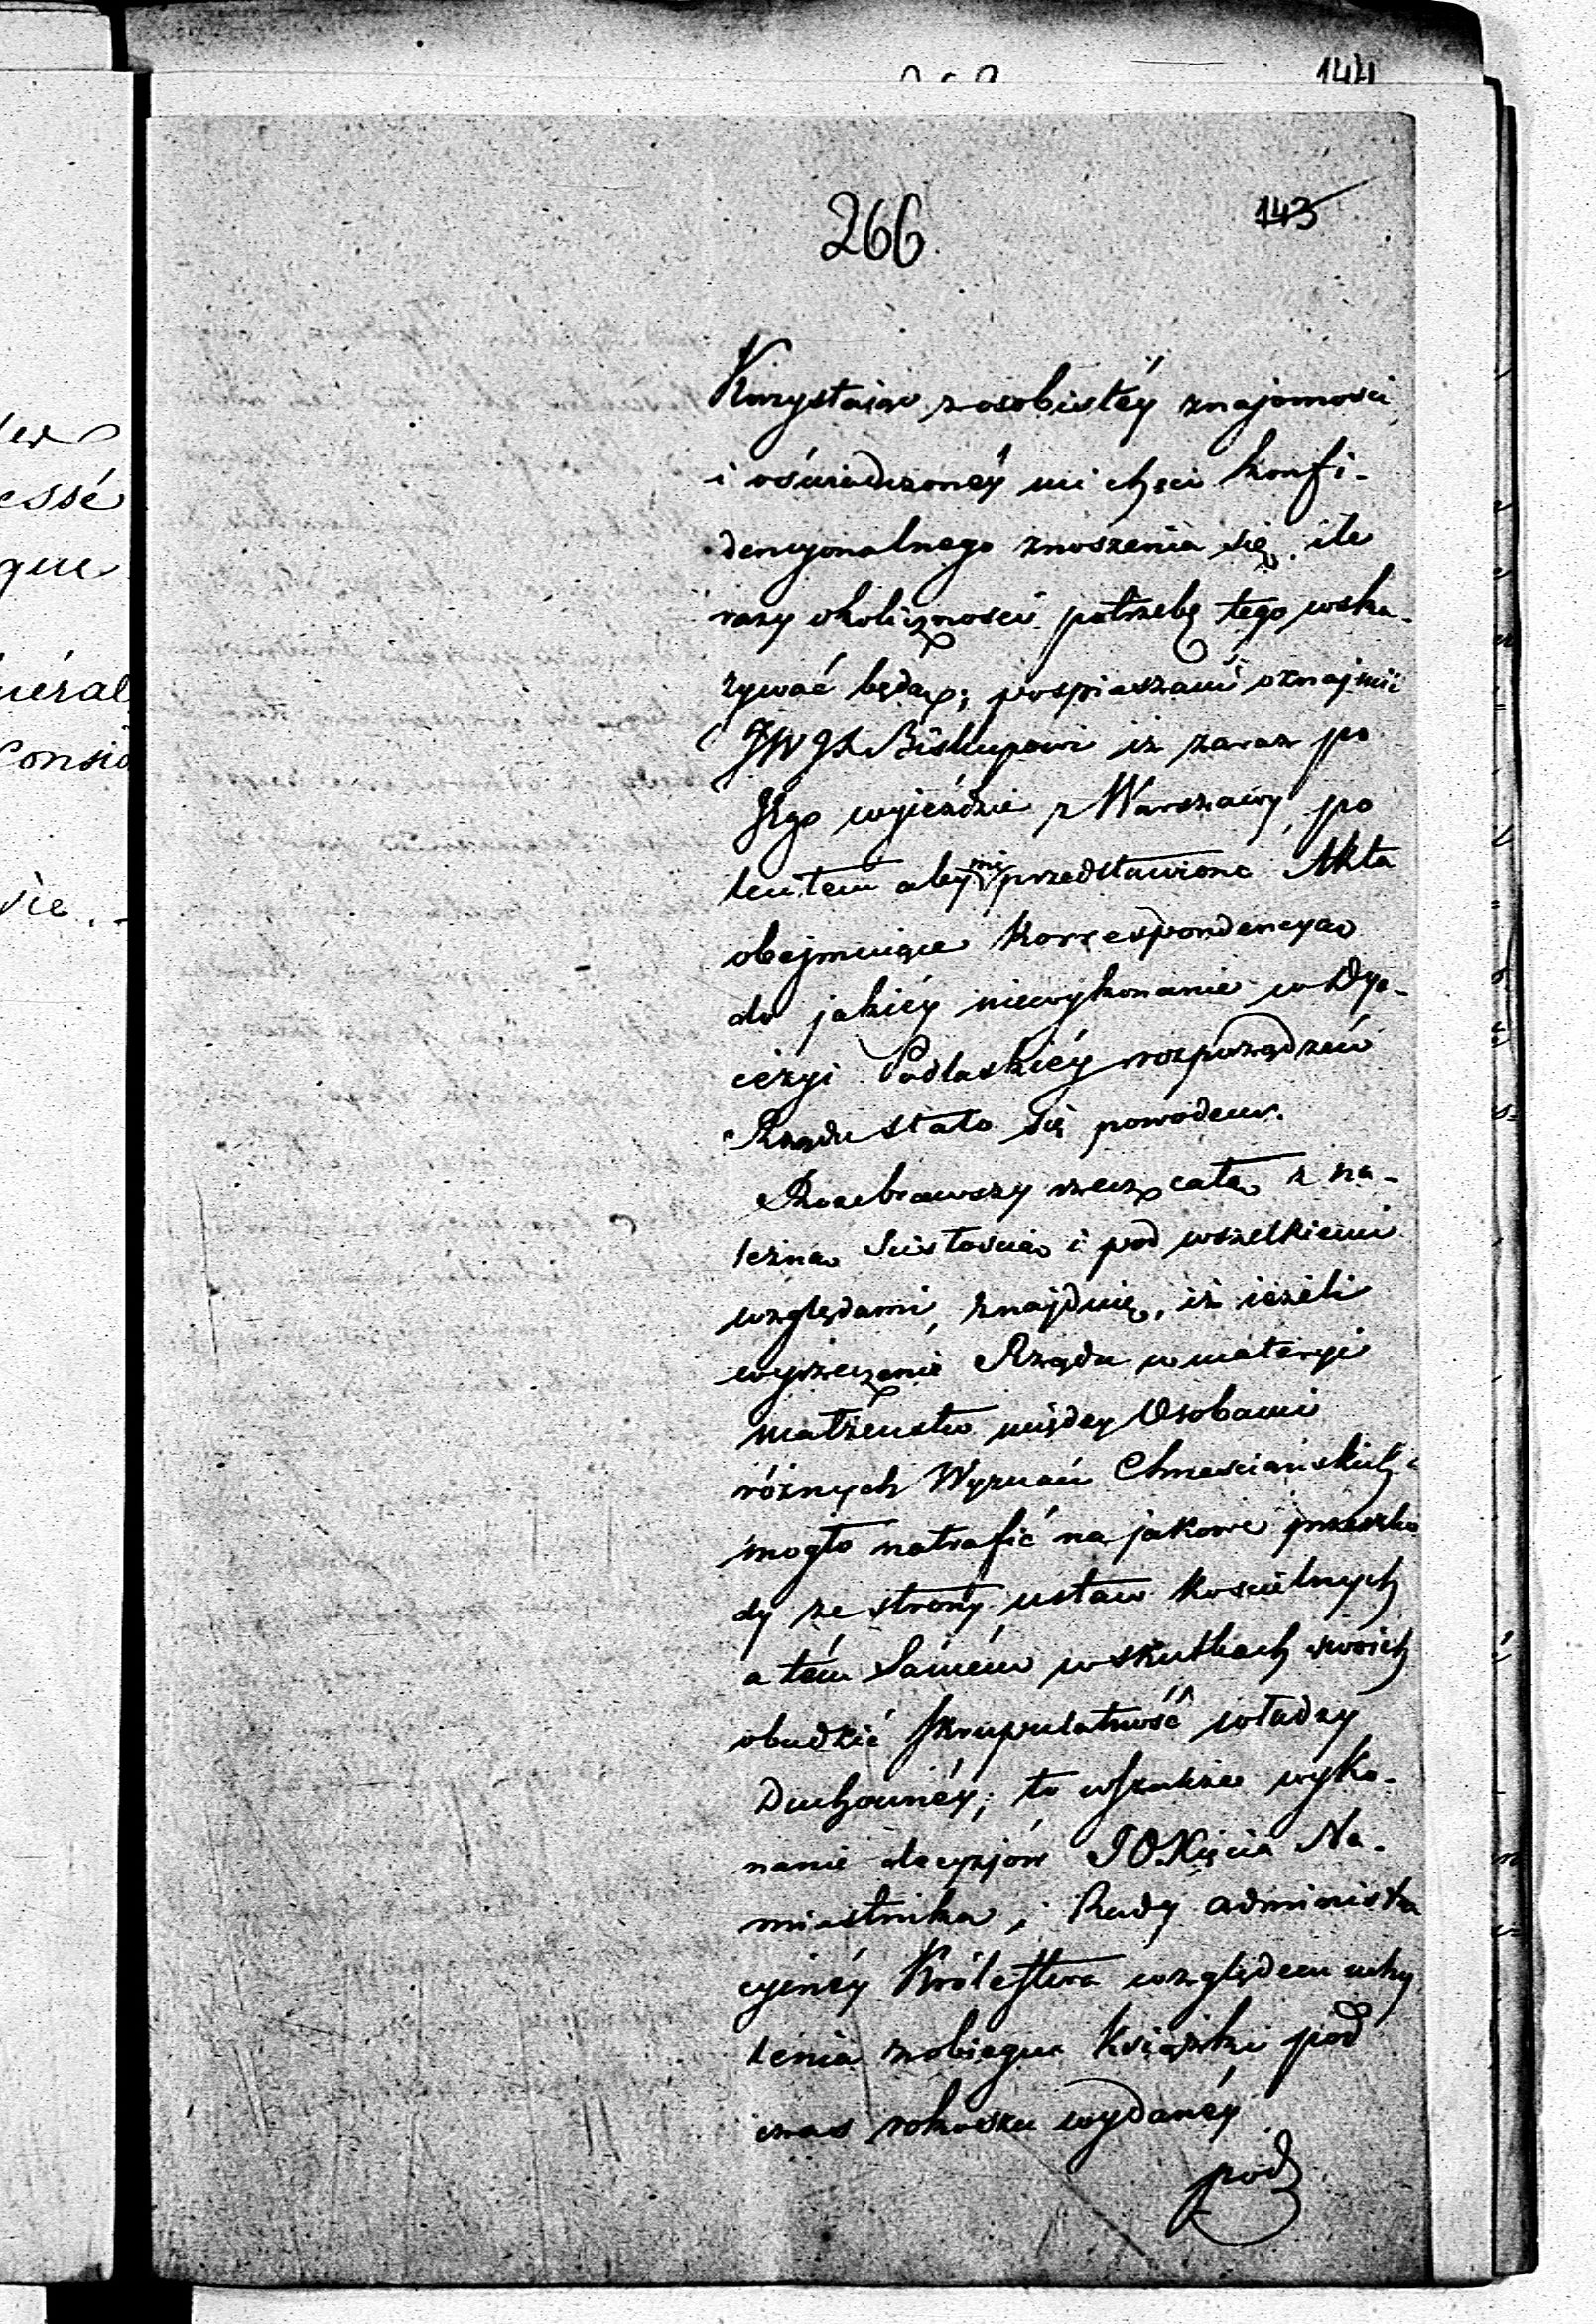 144
143
266
Korzystaiąc z osobistéy znajomości
i oświadczonéy mi chęci konfi-
dencyonalnego znoszenia się, ile
razy okoliczności potrzebę tego wska-
zywać będą; pospieszam oznajmić
JWJX Biskupowi iż zaraz po
Jego wyjeździe z Warszawy, po
leciłem aby mi przedstawiono Akta
obejmuiące korrespondencyą
do jakiéy niewykonanie w Dye-
cezyi Podlaskiéy rozporządzeń
Rządu stało się powodem.
Rozebrawszy rzecz całą z na-
leżną ścisłością i pod wszelkiemi
względami, znajduię, iż ieżeli
wyrzeczenie Rządu w materyi
małżeństw między Osobami
różnych Wyznań Chrześciańskich
mogło natrafić na jakowe przeszko
dy ze strony ustaw kościelnych
a tém samém w skutkach swoich
obudzić skrupulatność władzy
Duchownéy; to wszakże wyko-
nanie decyzjów JOXięcia Na-
miestnika i Rady administra
cyinéy Królestwa względem uchy
lenia z obiegu książki pod
czas rokoszu wydanéy
pod
essé
que
néral
Consid